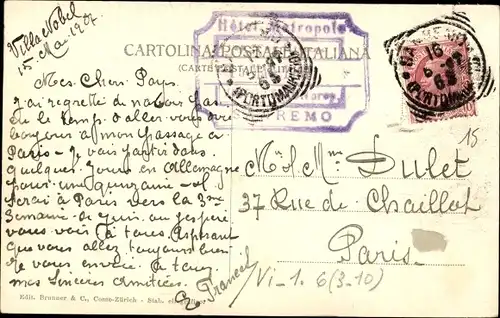 Villa Nobel
15 Mai 1907
Hôtel Métropole
REMO
CARTOLINA POSTALE ITALIANA
(CARTE POSTALE
Mes Chers Pays.
J'ai regretté de n'avoir pas
le temp d'aller vous dire
bonjour à mon passage à
Paris - Je vais partir dans
quelques jours en Allemagne
pour une quinzaine - et
serai à Paris vers la 3me
Semaine de Juin ou j'espère
vous voir à tous. Espérant
que vous allez toujours bien
Je vous envoie à tous
mes Sincères Amitiées.
(PORTO MAURIZIO)
10
15
M. et Mme Dulet
37 Rue de Chaillot
Paris
Vi-1. 6 (3-10)
Edit. Brunner & C., Como-Zürich - Stab.